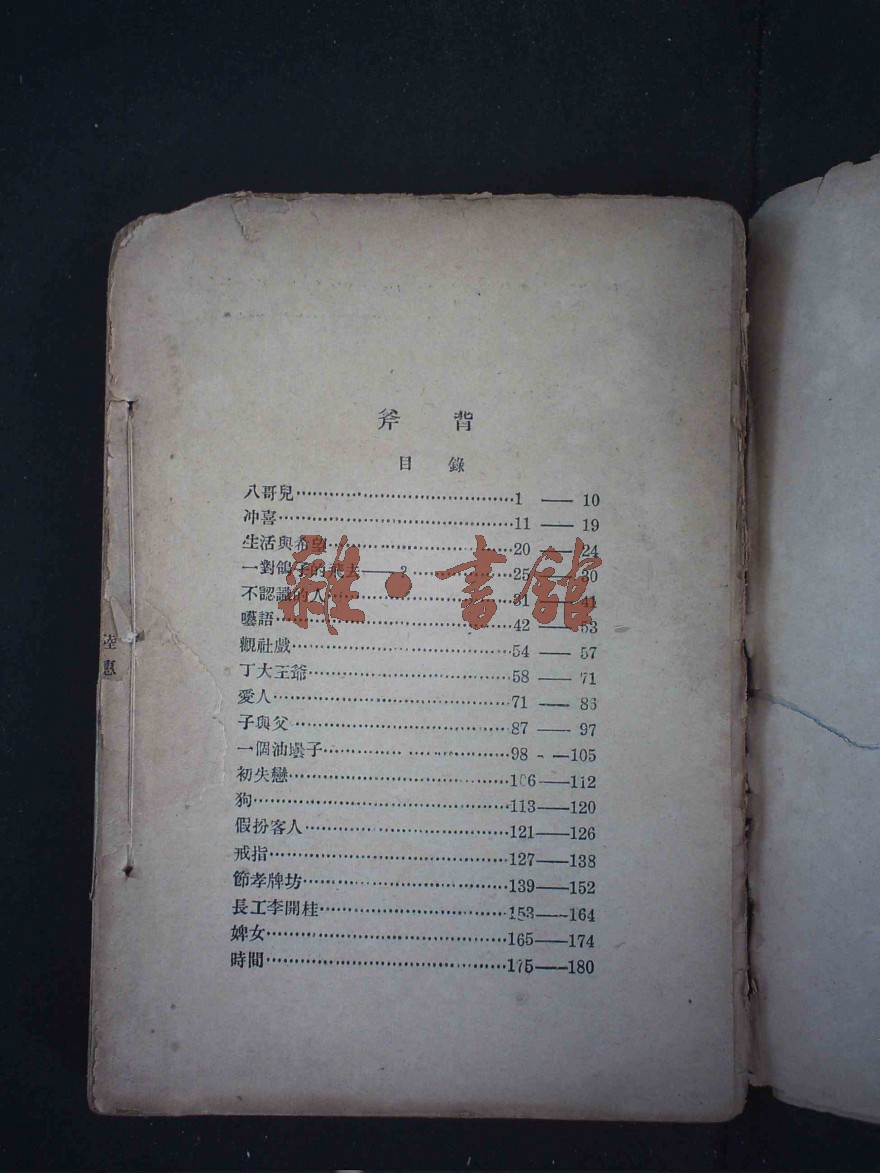 斧 背
目 錄
八哥兒⋯⋯⋯⋯⋯⋯⋯⋯1 —— 10
冲喜⋯⋯⋯⋯⋯⋯⋯⋯11 —— 19
生活與希望⋯⋯⋯⋯⋯⋯⋯⋯20 —— 24
一對鴿子的飛去——?⋯⋯⋯⋯25 —— 30
不認識的人⋯⋯⋯⋯⋯⋯⋯⋯31 —— 41
囈語⋯⋯⋯⋯⋯⋯⋯⋯42 —— 53
觀社戲⋯⋯⋯⋯⋯⋯⋯⋯54 —— 57
丁大王爺⋯⋯⋯⋯⋯⋯⋯⋯58 —— 71
愛人⋯⋯⋯⋯⋯⋯⋯⋯71 —— 86
子與父⋯⋯⋯⋯⋯⋯⋯⋯87 —— 97
一個油罎子⋯⋯⋯⋯⋯⋯⋯⋯98 ——105
初失戀⋯⋯⋯⋯⋯⋯⋯⋯106——112
狗⋯⋯⋯⋯⋯⋯⋯⋯113——120
假扮客人⋯⋯⋯⋯⋯⋯⋯⋯121——126
戒指⋯⋯⋯⋯⋯⋯⋯⋯127——138
節孝牌坊⋯⋯⋯⋯⋯⋯⋯⋯139——152
長工李開桂⋯⋯⋯⋯⋯⋯⋯⋯153——164
婢女⋯⋯⋯⋯⋯⋯⋯⋯165——174
時間⋯⋯⋯⋯⋯⋯⋯⋯175——180
雜·書館
惠